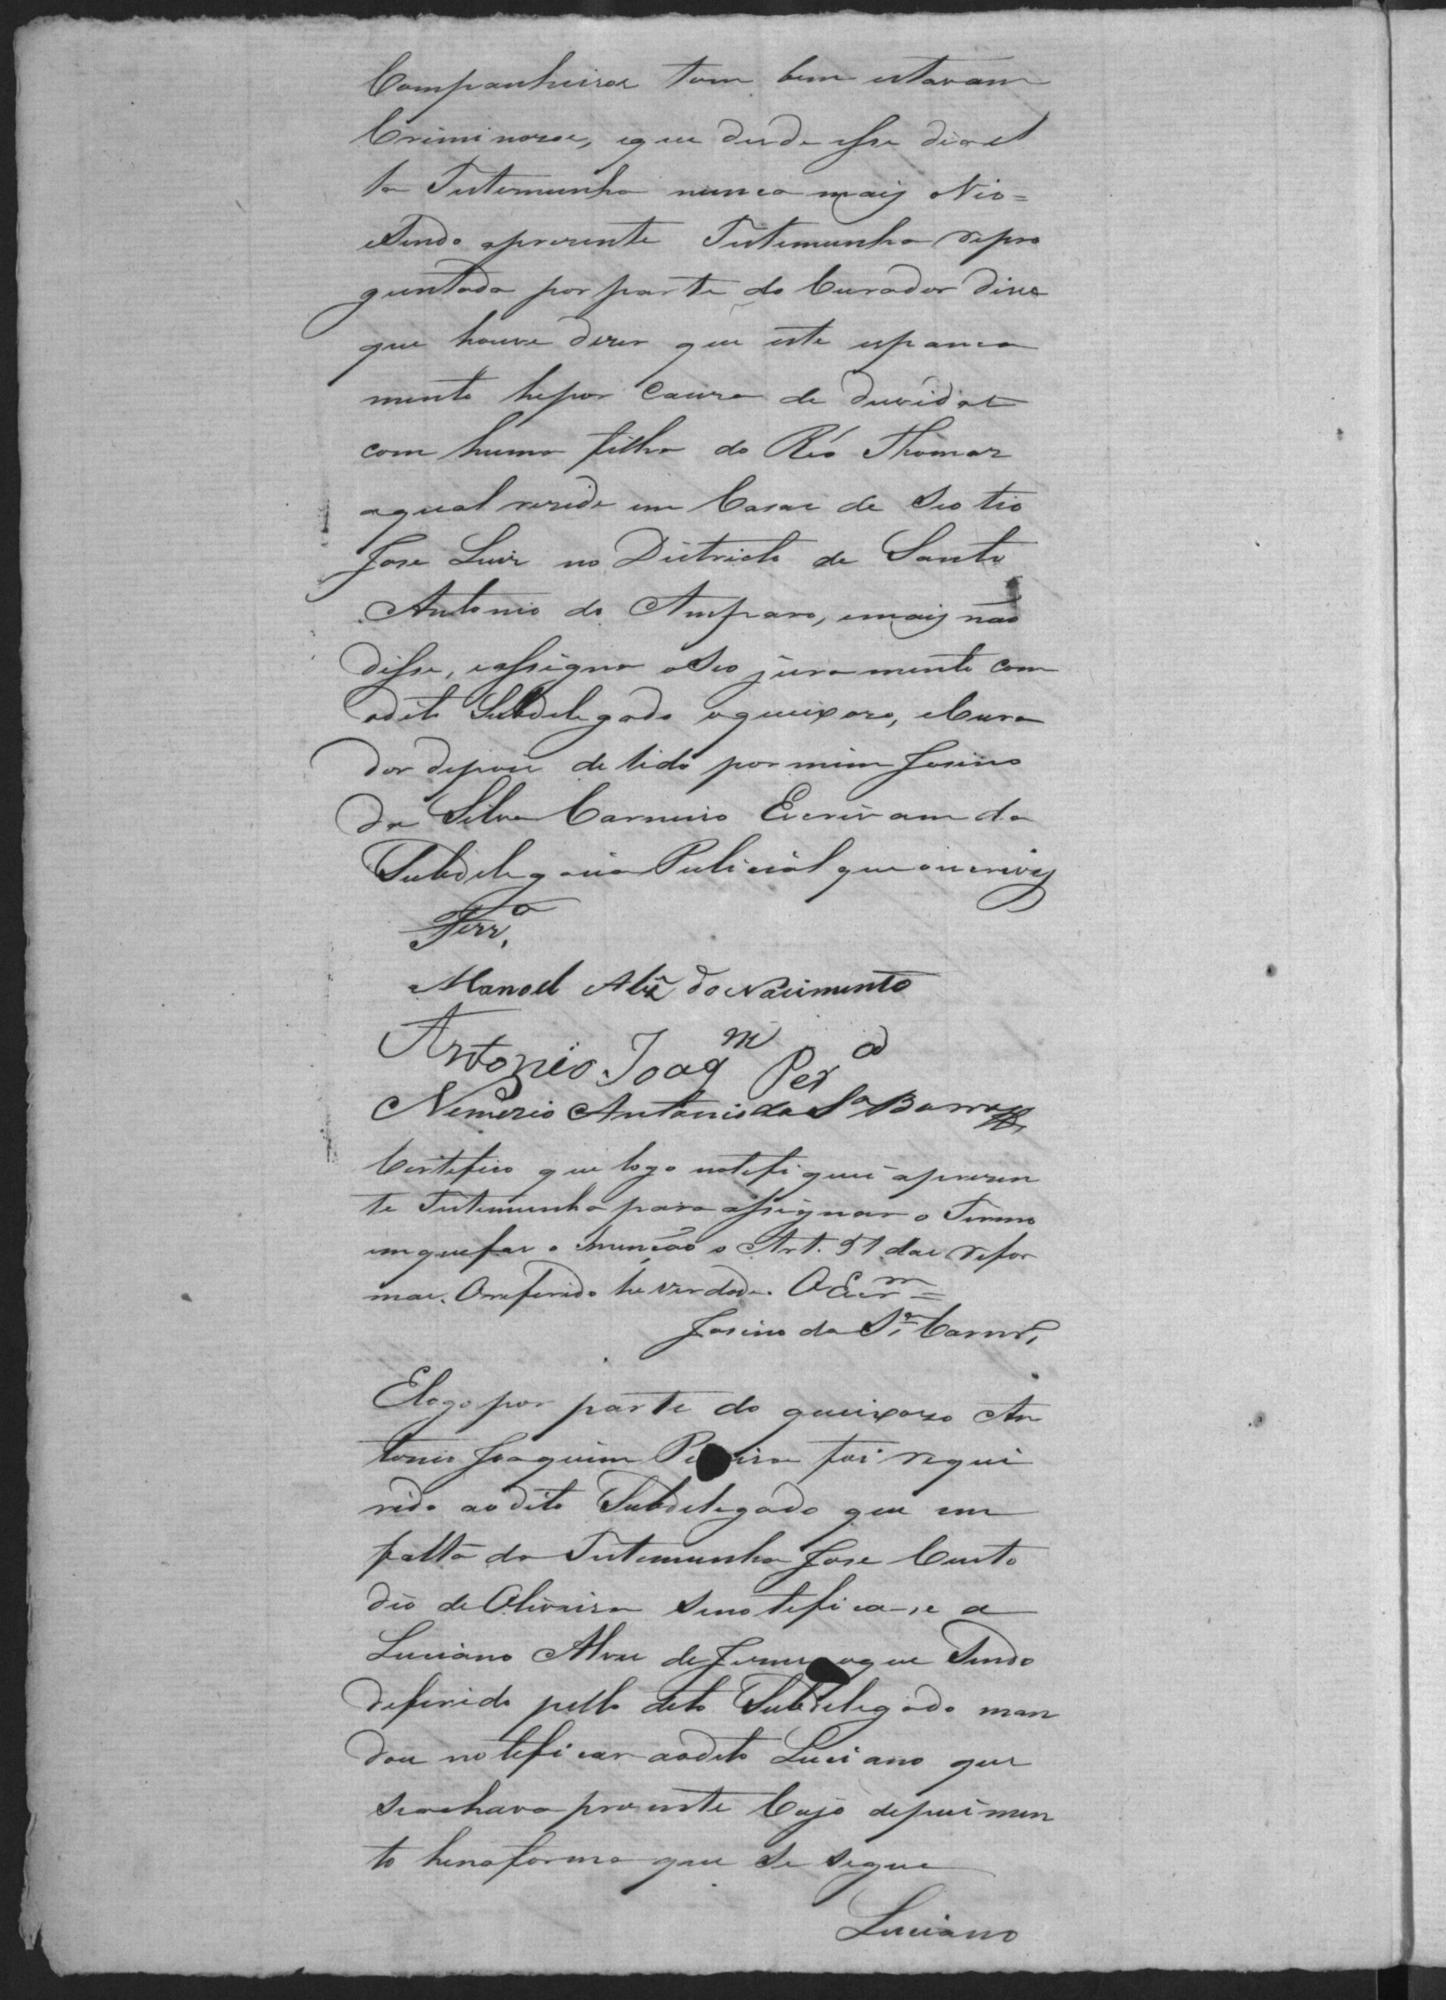 Companheiros tam bem estavam
Criminosos, eque desde esse dia el
la Testemunha nunca mais Vio=
eSendo apresente Testemunha repro
guntada por parte do Curador disse
que houve dizer que este espanca
mento hepor causa de duvidas
com huma filha do Réo Thomaz
aqual reside em Casas de Seo tio
Jose Luiz no Districto de Santo
Antonio do Amparo, emais não
disse, eassigna oSeo juramento com
odito Subdelegado oqueixoso, eCura
dor depois de lido por mim Josino
da Silva Carneiro Escrivam da
Subdelegacia Pulicial que oescrivy
Ferr.ª
Manoel Alz do Nascimento
Antonio Joaqm Perª
Nemezio Antonio da Sª Barros
Certefico que logo notefiquei apresen
te Testemunha para assignar o Termo
emquefas menção o Art. 51 das refor
mas. Oreferido he verdade. O Escrm=
Josino da Sª Carnrº
Elogo por parte do queixoso An
tonio Joaquim Pereira foi requi
rido aodito Subdelegado que em
falta da Testemunha Jose Custo
dio de Oliveira senotificase a
Luciano Alves de oque Sendo
deferido pello dito Subdelegado man
dou notefiicar aodito Luciano que
seachava presente Cujo depuimen
to henaforma que se segue
Luciano